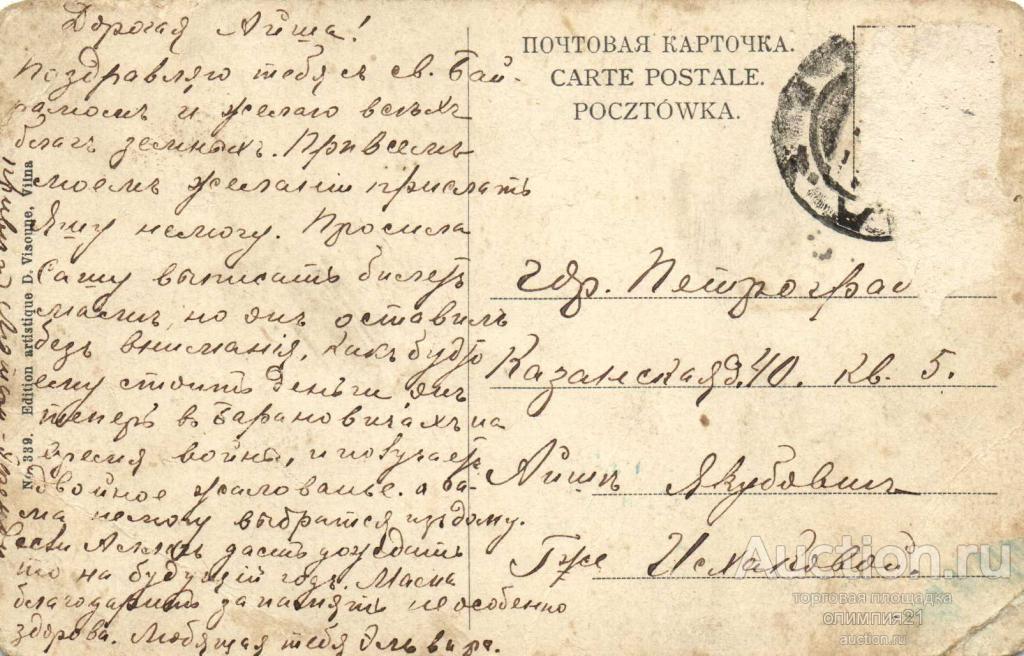 Дорогая Айша!
Поздравляю тебя съ св. Бай-
рамомъ и желаю всѣхъ
благъ земныхъ. При всемъ
моемъ желаніи прислать
Яшу не могу. Просила
Сашу выписать билетъ
мамѣ, но онъ оставилъ
безъ вниманія, какъ будто
ему стоитъ деньги онъ
теперь въ Барановичахъ на
время войны, и получаетъ
двойное жалованье. а ма-
ма не могу выбраться изъ дому.
если Аллахъ дастъ дождать
то на будущій годъ. Мама
благодаритъ за память не особенно
здорова. Любящая тебя Эльвира.
ПОЧТОВАЯ КАРТОЧКА.
CARTE POSTALE.
POCZTÓWKA.
гор. Петроград
Казанская д. 40. кв. 5.
Айшѣ Якубовнѣ
Гже Исхаковой.
№ 339. Edition artistique D. Visoune, Vilna
Auction.ru
торговая площадка
олимпия21
auction.ru